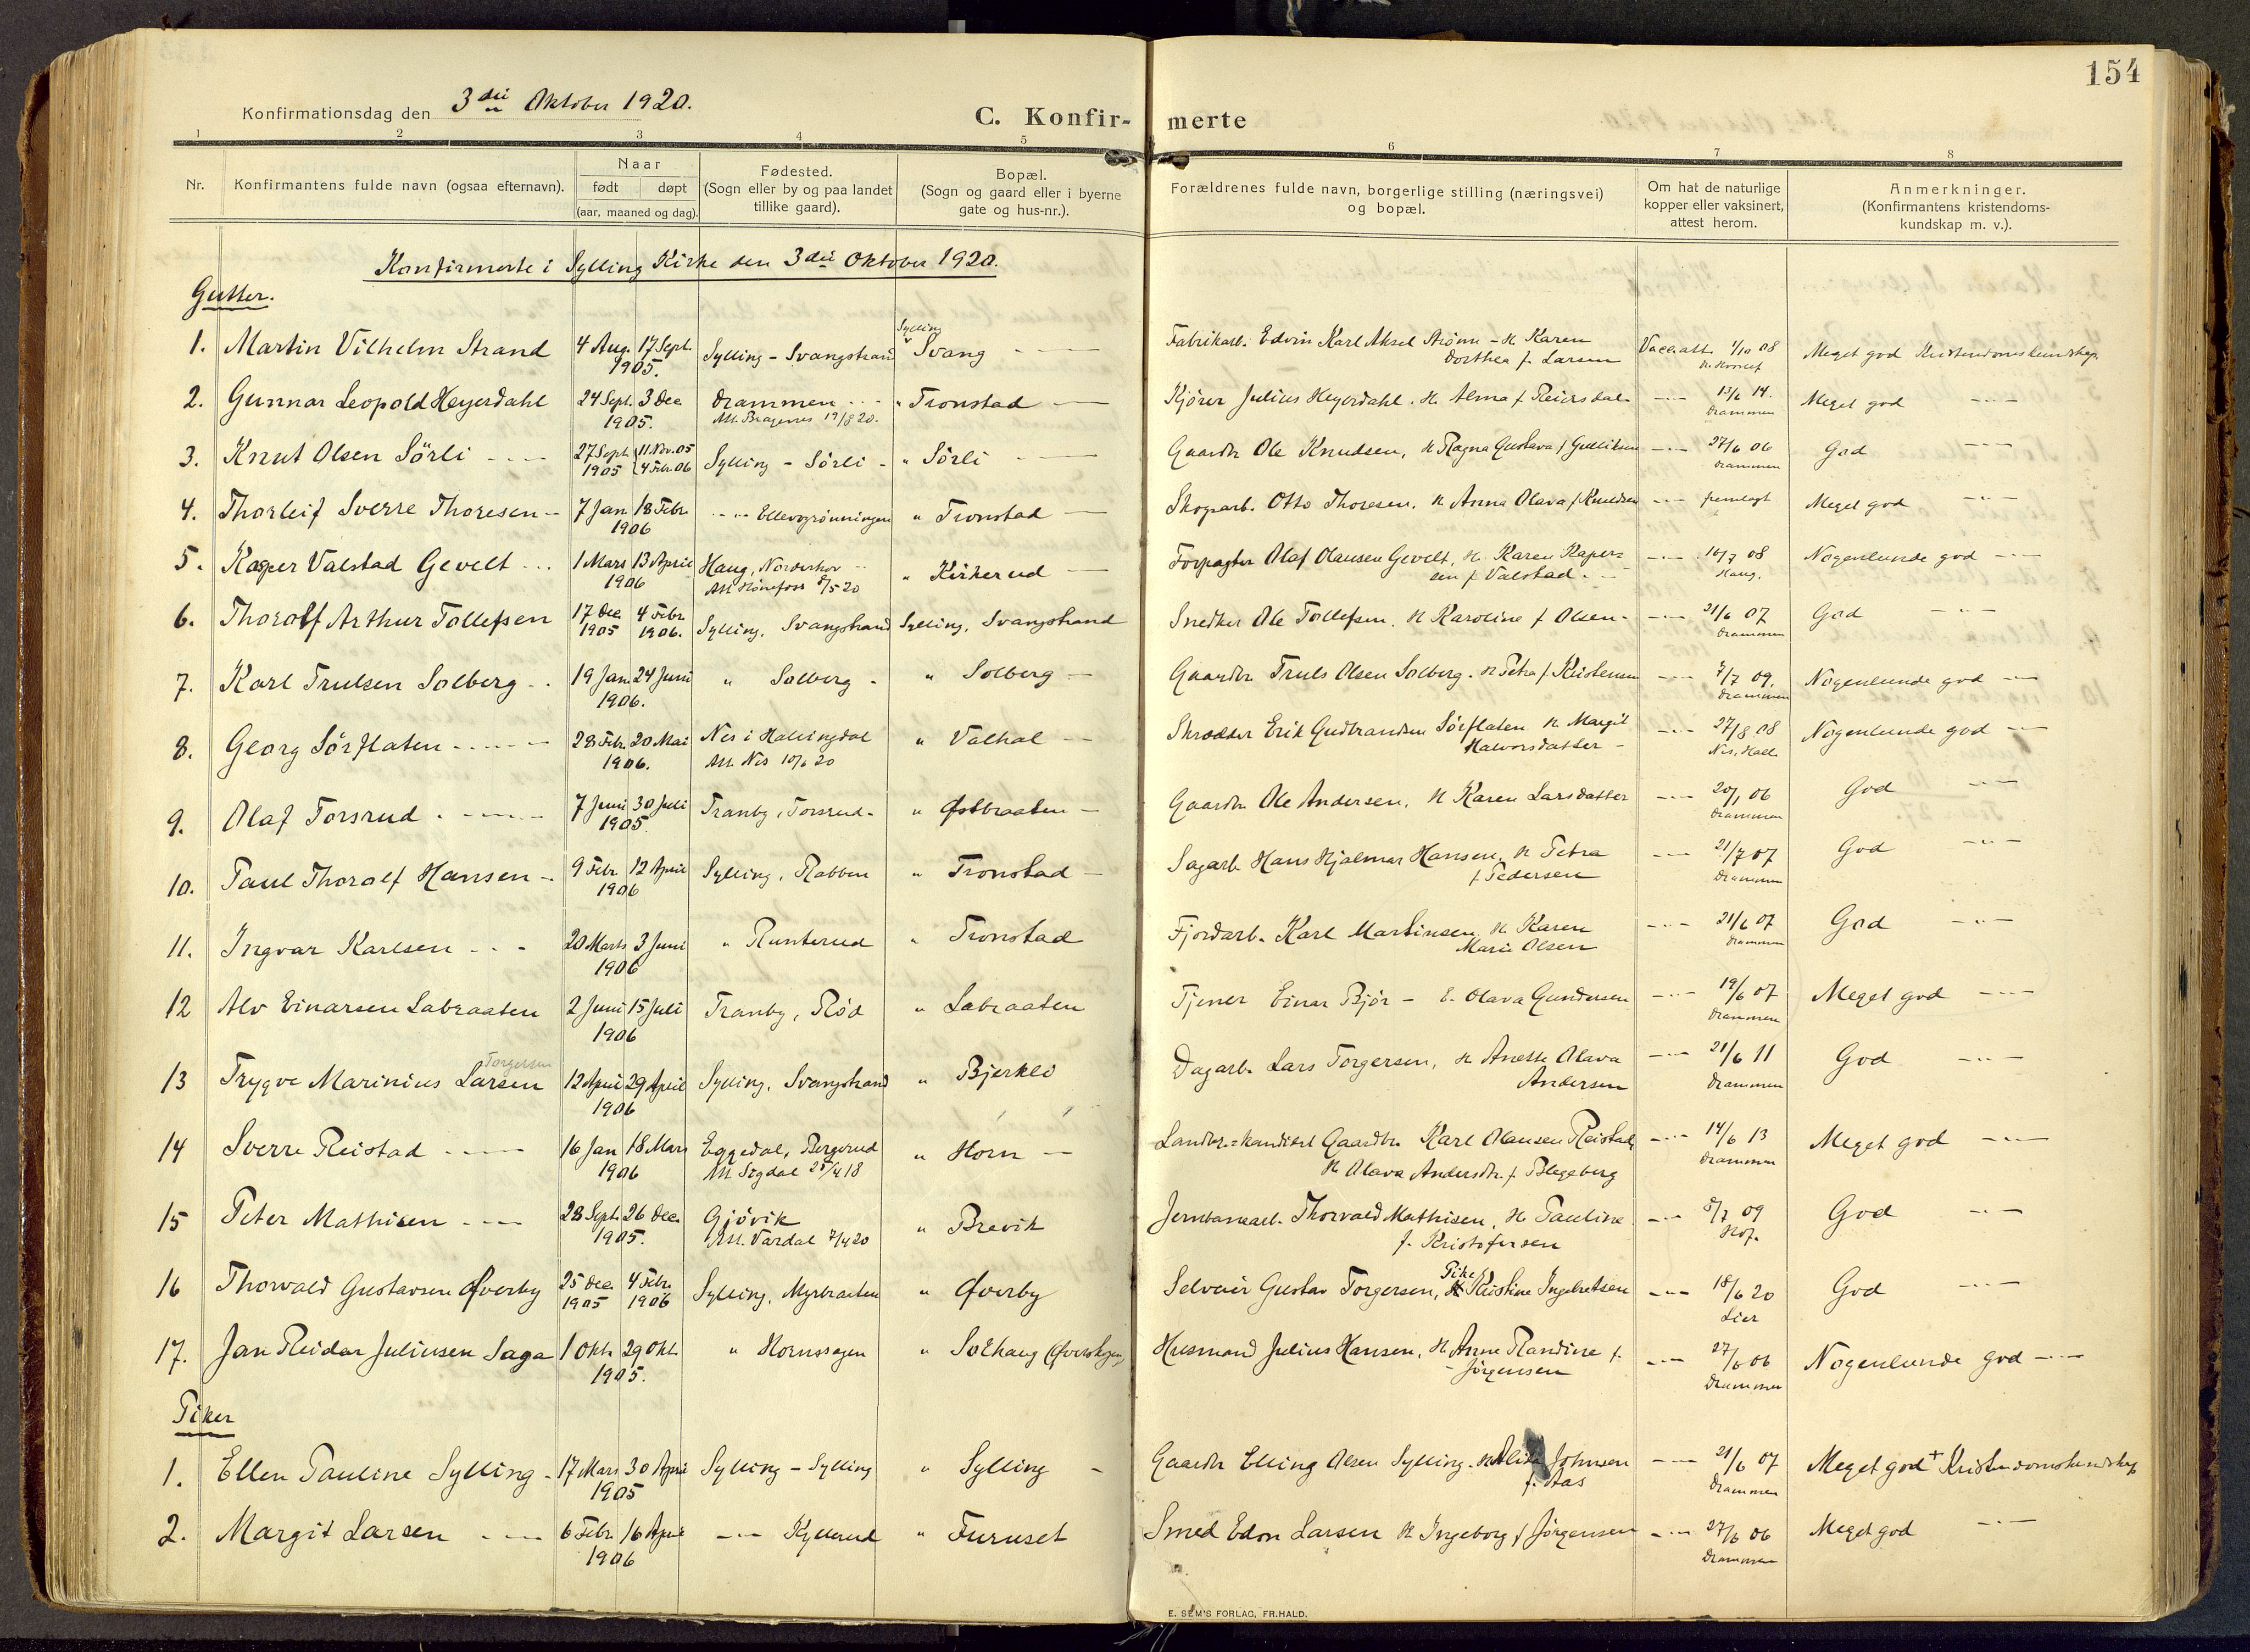 154
Konfirmationsdag den 3die Oktober 1920.
C. Konfirmerte
1 2 3 4 5 6 7 8
Nr.
Konfirmantens fulde navn (ogsaa efternavn).
Naar
født døpt
(aar, maaned og dag).
Fødested.
(Sogn eller by og paa landet
tillike gaard).
Bopæl.
(Sogn og gaard eller i byerne
gate og hus-nr.).
Forældrenes fulde navn, borgerlige stilling (næringsvei)
og bopæl.
Om hat de naturlige
kopper eller vaksinert,
attest herom.
Anmerkninger.
(Konfirmantens kristendoms-
kundskap m. v.).
Konfirmerte i Sylling Kirke den 3die Oktober 1920.
Gutter.
1. Martin Vilhelm Strand 4 Aug. 17 Sept. 1905. Sylling - Svangstrand Sylling Svang Fabrikarb. Edvin Karl Aksel Strøm - H. Karen Dorthea f. Larsen Vacc.att. 1/10 08 Meget god Kristendomskundskap
2. Gunnar Leopold Heyerdahl 24 Sept. 3 Dec 1905. Drammen Att. Bragernes 19/8 20. " Tronstad Kjører Julius Heyerdahl. H. Alma f. Reiersdal 13/6 14. Drammen Meget god
3. Knut Olsen Sörli 27 Sept. 1905 11 Nov. 05 4 Febr. 06 Sylling - Sörli " Sörli Gaardbr. Ole Knudsen, H. Ragna Gustava f. Gulliksen 27/6 06 Drammen God
4. Thorleif Sverre Thoresen 7 Jan 18 Febr. 1906 " Tronstad Skogsarb. Otto Thoresen. H. Anna Olava f. Knudsen fremlagt Meget god
5. Kasper Valstad Gevelt 1 Mars 13 April 1906 Haug, Norderhov Att. Hønefoss 8/5 20 " Kirkerud Forpagter Olaf Olausen Gevelt, H. Karen Kaspersen f. Valstad. 16/7 08 Haug. Nogenlunde god
6. Thorolf Arthur Tollefsen 17 Dec 1905 4 Febr 1906. Sylling, Svangstrand Sylling, Svangstrand Snedker Ole Tollefsen. H. Karoline f. Olsen 21/6 07 Drammen God
7. Karl Trulsen Solberg 19 Jan 24 Juni 1906. " Solberg " Solberg Gaardbr. Truls Olsen Solberg. H. Petra f. Kristensen 7/7 09. Drammen Nogenlunde god
8. Georg Sörflaten 28 Febr. 20 Mai 1906. Nes i Hallingdal Att. Nes 10/6 20 " Valhal Skrædder Erik Gudbrandsen Sörflaten H. Margit Halvorsdatter 27/8 08 Nes, Hall. Nogenlunde god
9. Olaf Torsrud 7 Juni 30 Juli 1905 Tranby, Torsrud " Østbraaten Gaardbr. Ole Andersen, H. Karen Larsdatter 20/1 06 Drammen God
10. Paul Thoralf Hansen 9 Febr. 12 April 1906 Sylling, Rabben " Tronstad Sagarb. Hans Hjalmar Hansen, H. Petra f. Pedersen 21/7 07 Drammen God
11. Ingvar Karlsen 20 Marts 3 Juni 1906 " Runterud " Tronstad Fjordarb. Karl Martinsen, H. Karen Marie Olsen 21/6 07 Drammen God
12 Alv Einarsen Labraaten 2 Juni 15 Juli 1906 Tranby, Röd " Labraaten Tjener Einar Björ - E. Olava Gundersen 19/6 07 Drammen Meget god
Torgersen
13 Trygve Marinius Larsen 12 April 29 April 1906 Sylling, Svangstrand " Bjerkli Dagarb. Lars Torgersen, H. Anette Olava Andersen 21/6 11 Drammen God
14 Sverre Reistad 16 Jan 18 Mars 1906 Eggedal, Bergerud Att. Sigdal 25/4 18 " Horn Landbr.-kandidat Gaardbr. Karl Olausen Reistad H. Olava Andersdtr. f. Blegeberg 14/6 13 Drammen Meget god
15 Peter Mathisen 28 Sept. 26 Dec. 1905. Gjövik Att. Vardal 7/4 20 " Brevik Jernbanearb. Thorvald Mathisen, H. Pauline f. Kristofersen 8/7 09 Hof. God
16 Thorvald Gustavsen Øverby 25 Dec 1905 4 Febr. 1906 Sylling, Myrbraaten " Øverby Selveier Gustav Torgersen, Pike Kristine Ingebretsen 18/6 20 Lier God
17. Jan Reidar Juliusen Saga 1 Okt. 29 Okt. 1905. " Hornssagen " Solhaug (Øverskogen) Husmand Julius Hansen, H. Anne Randine f. Jörgensen 27/6 06 Drammen Nogenlunde god
Piker
1. Ellen Pauline Sylling 17 Mars 30 April 1905 Sylling - Sylling " Sylling Gaardbr. Elling Olsen Sylling. H. Johnsen f. Aas 21/6 07 Drammen Meget god + Kristendomskundskap
2. Margit Larsen 6 Febr. 16 April 1906 Kyllerud " Furuset Smed Edon Larsen H. Ingeborg f. Jörgensen 27/6 06 Drammen Meget god
E. SEM'S FORLAG, FR.HALD.